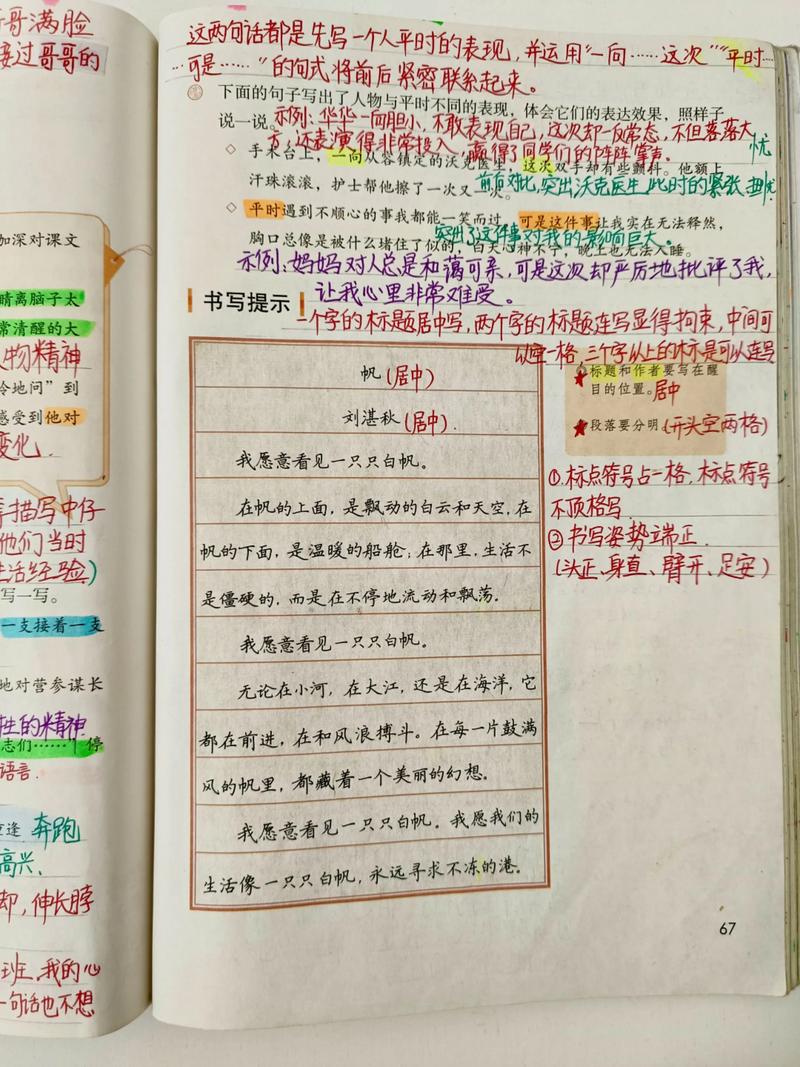 哥满脸
接过哥哥的
加深对课文
睛离脑子太
常清醒的大
人物精神
冷地问”到
感受到他对
变化.
描写中仔
他们当时
生活经验)
写一写。
一支接着一支
地对营参谋长
牲的精神
志们……”停
语言.
重逢 奔跑
高兴.
却,伸长脖
班.我的心
一句话也不想
这两句话都是先写一个人平时的表现,并运用“一向……这次”“平时…
…可是……”的句式将前后紧密联系起来。
下面的句子写出了人物与平时不同的表现,体会它们的表达效果,照样子
说一说。
示例:华华一向胆小,不敢表现自己,这次却一反常态,不但落落大
方,还表演得非常投入,赢得了同学们的阵阵掌声.
◇ 手术台上,一向从容镇定的沃克医生,这次双手却有些颤抖。他额上
汗珠滚滚,护士帮他擦了一次又一次。
前后对比,突出沃克医生此时的紧张 担忧
忧
◇ 平时遇到不顺心的事我都能一笑而过,可是这件事让我实在无法释然,
突出了这件事对我的影响巨大。
胸口总像是被什么堵住了似的,白天心神不宁,晚上也无法入睡。
示例:妈妈对人总是和蔼可亲,可是这次却严厉地批评了我,
让我心里非常难受。
书写提示
一个字的标题居中写,两个字的标题连写显得拘束,中间可
以空一格,三个字以上的标题可以连写
帆(居中)
刘湛秋(居中).
我愿意看见一只只白帆。
在帆的上面,是飘动的白云和天空,在
帆的下面,是温暖的船舱;在那里,生活不
是僵硬的,而是在不停地流动和飘荡。
我愿意看见一只只白帆。
无论在小河,在大江,还是在海洋,它
都在前进,在和风浪搏斗。在每一片鼓满
风的帆里,都藏着一个美丽的幻想。
我愿意看见一只只白帆。我愿我们的
生活像一只只白帆,永远寻求不冻的港。
标题和作者要写在醒
目的位置。居中
段落要分明(开头空两格)
①.标点符号占一格,标点符号
不顶格写.
②书写姿势端正.
(头正、身直、臂开、足安)
67